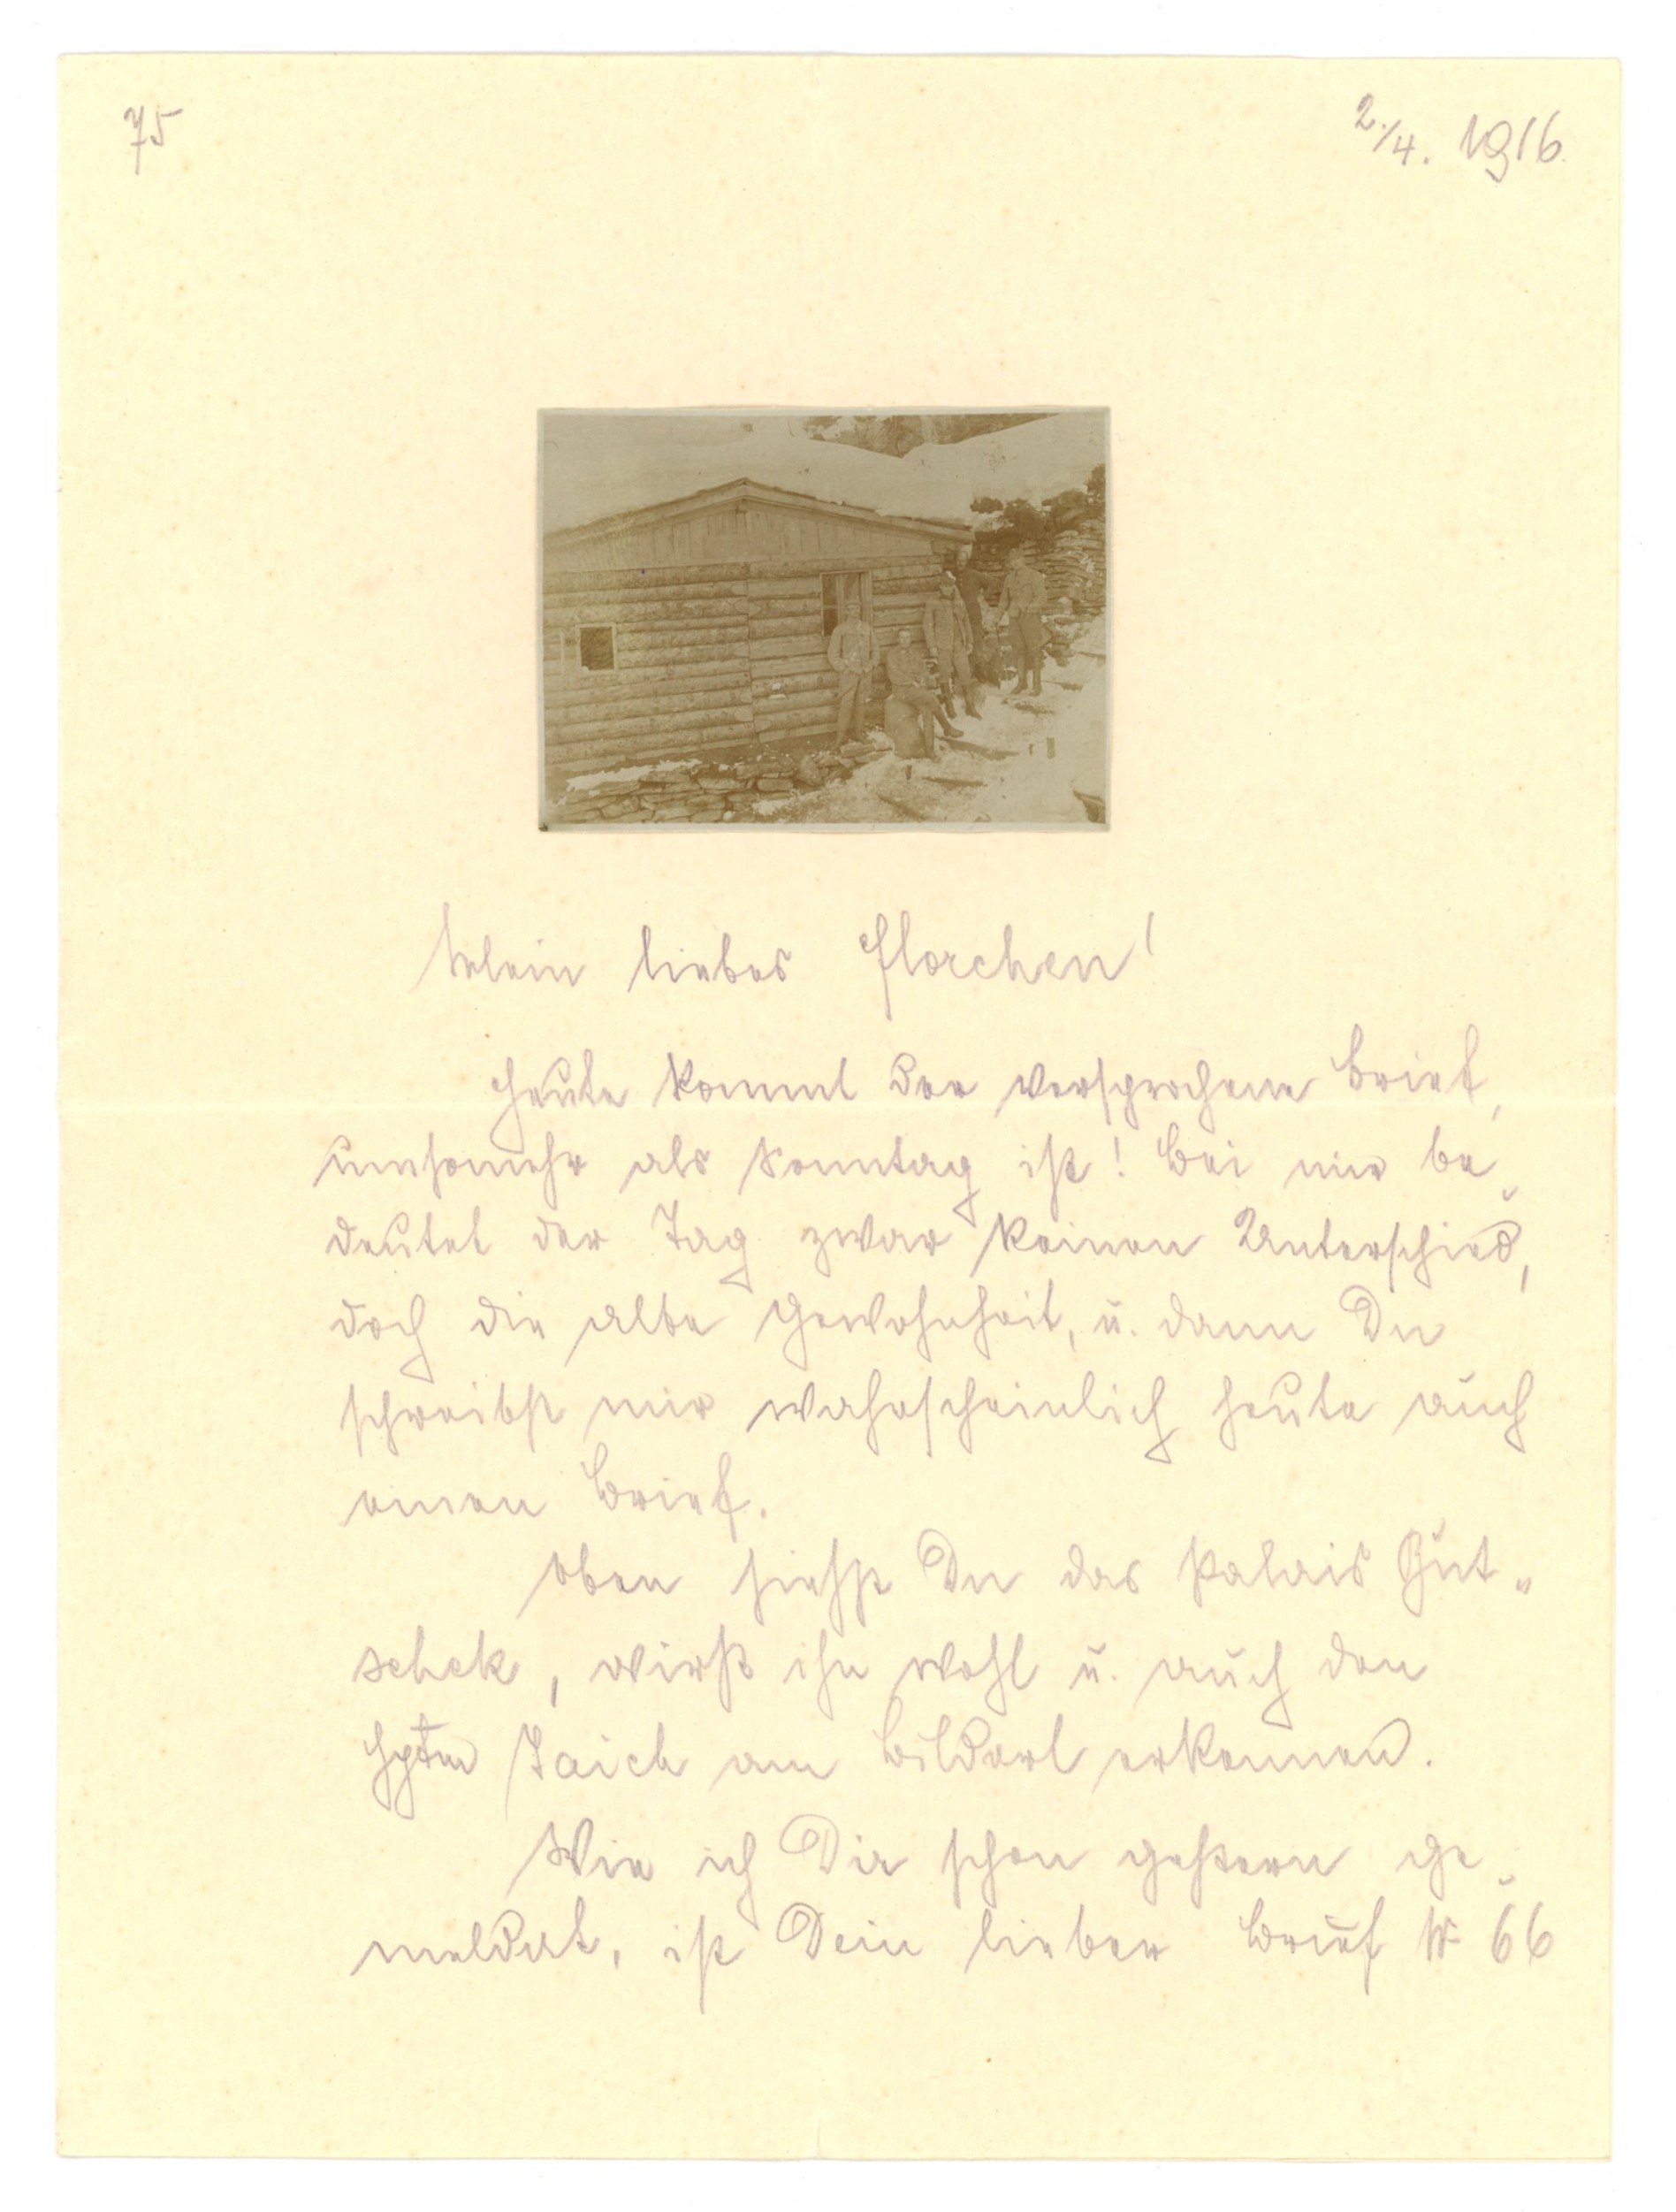 75
2./4. 1916.
Mein liebes Florchen!
Heute kommt der versprochene Brief,
umsomehr als Sonntag ist! Bei mir be„
deutet der Tag zwar keinen Unterschied,
doch die alte Gewohnheit, u. dann Du
schreibst mir wahrscheinlich heute auch
einen Brief.
Oben siehst Du das Palais Gut„
schek, wirst ihn wohl u. auch den
Hptm Jaich am Bilderl erkennen.
Wie ich Dir schon gestern ge„
meldet, ist Dein lieber Brief № 66